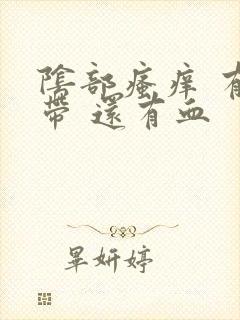 陰部瘙痒 有
帶 還有血
畢妍婷